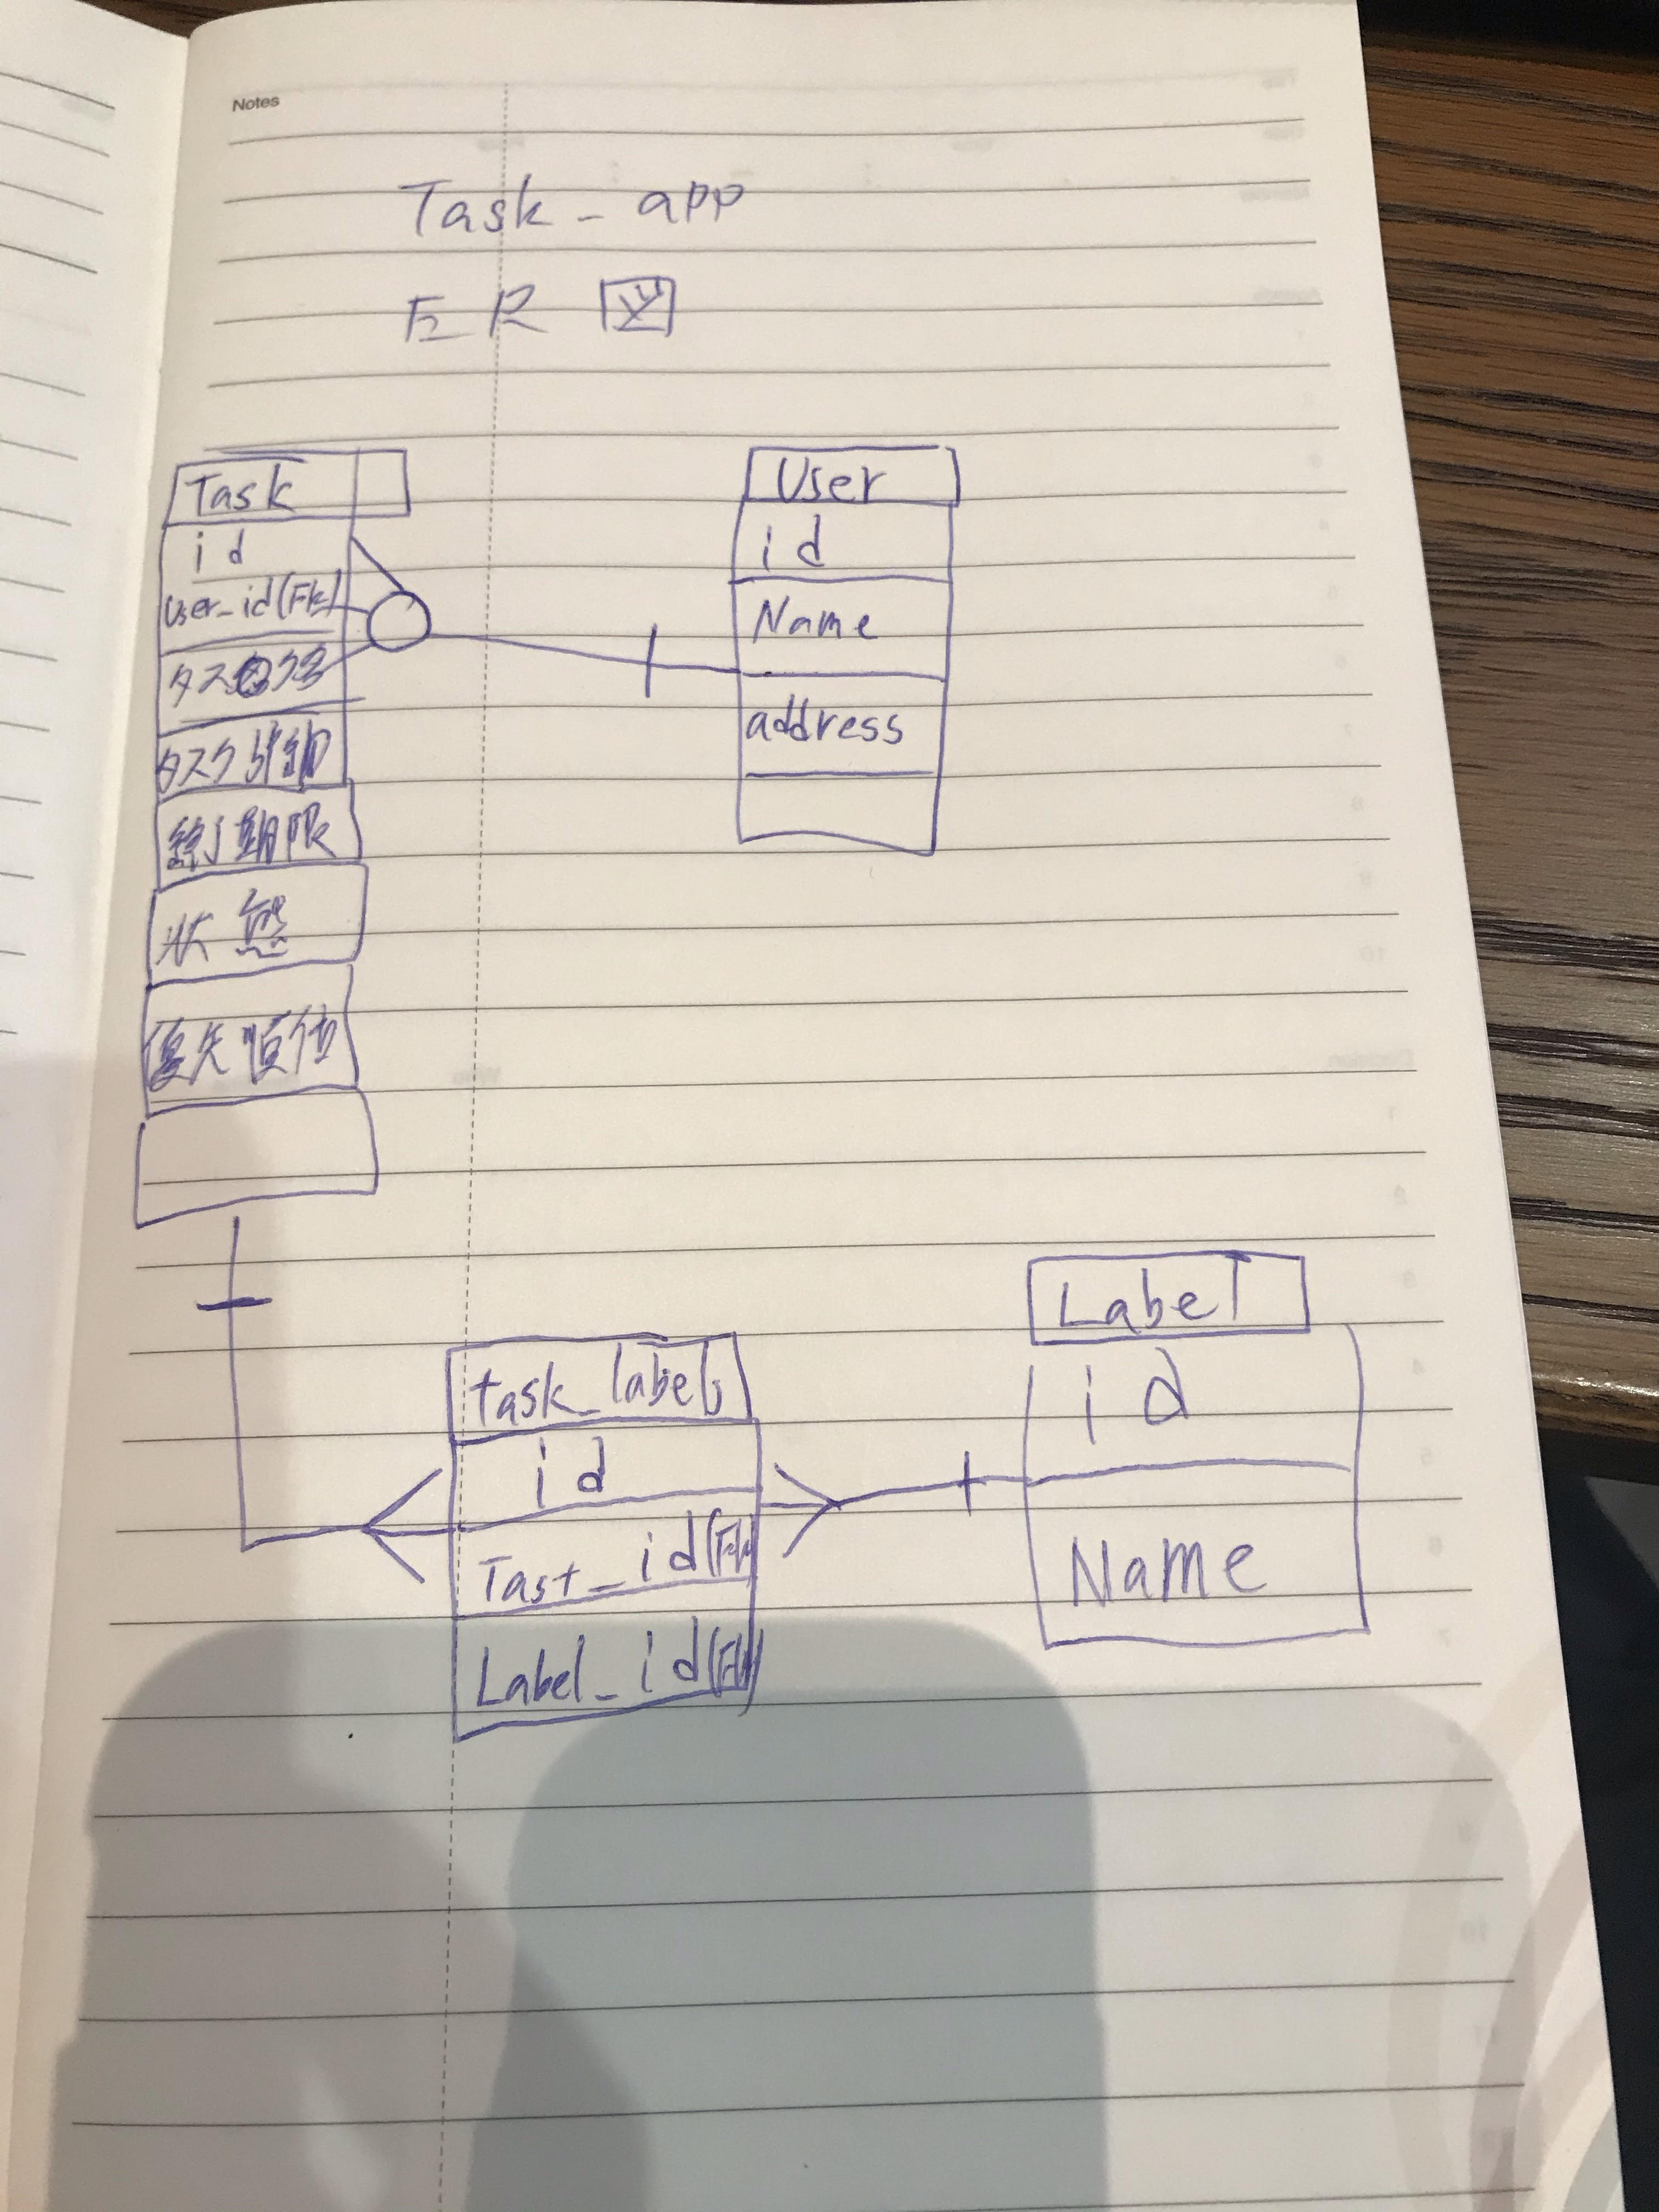 Notes
Task - app
ER 図
Task
id
User_id(Fk)
タスク名
タスク詳細
終了期限
状態
優先順位
User
id
Name
address
task_labels
id
Tast_id(Fk)
Label_id(Fk)
Label
id
Name